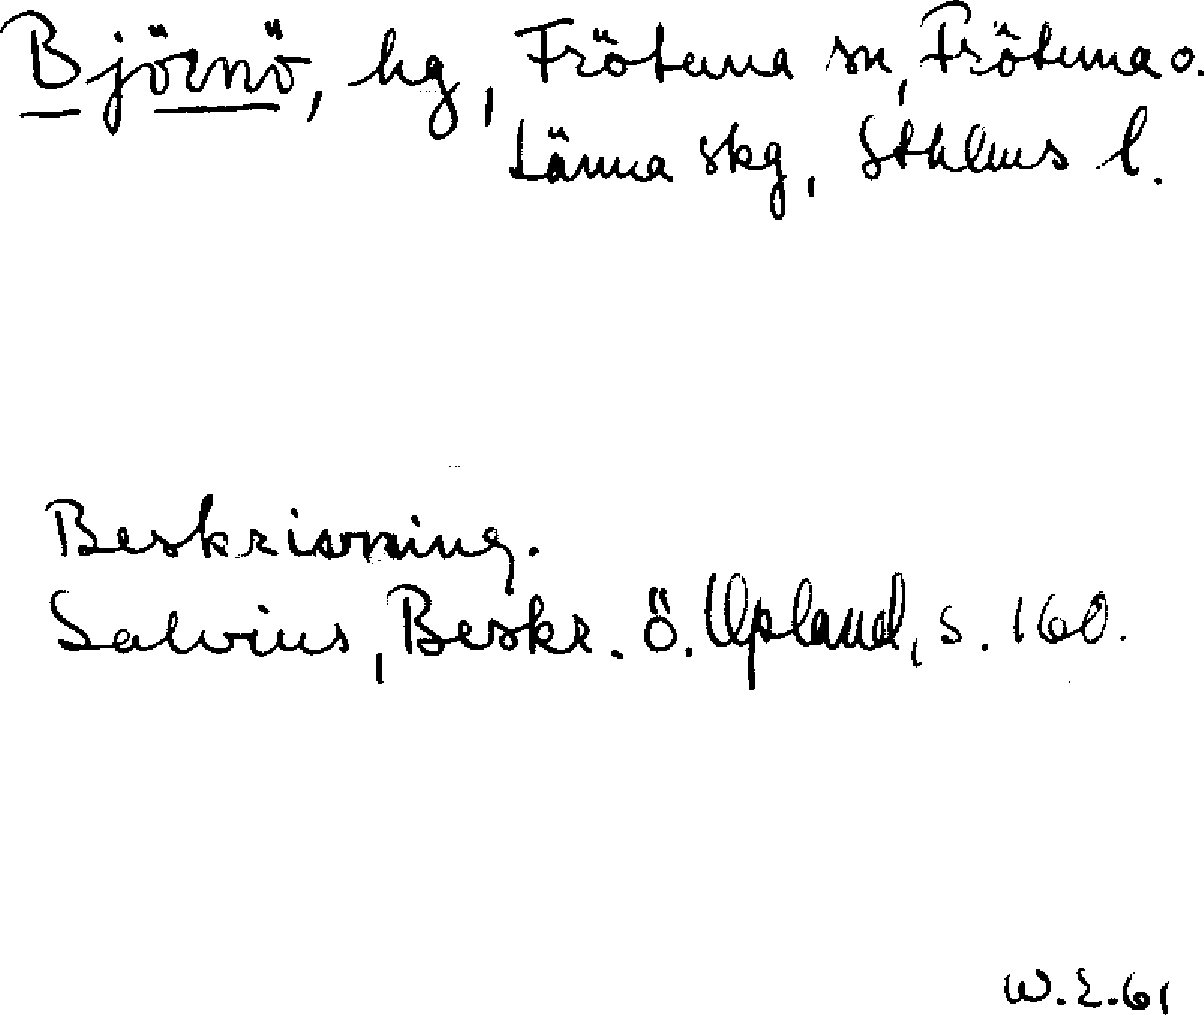 Björnö, hg, Frötuna sn, Frötuna o.
Länna skg, Sthlms l.
Beskrivning.
Salvius, Beskr. Ö. Upland, s. 160.
W.E.61